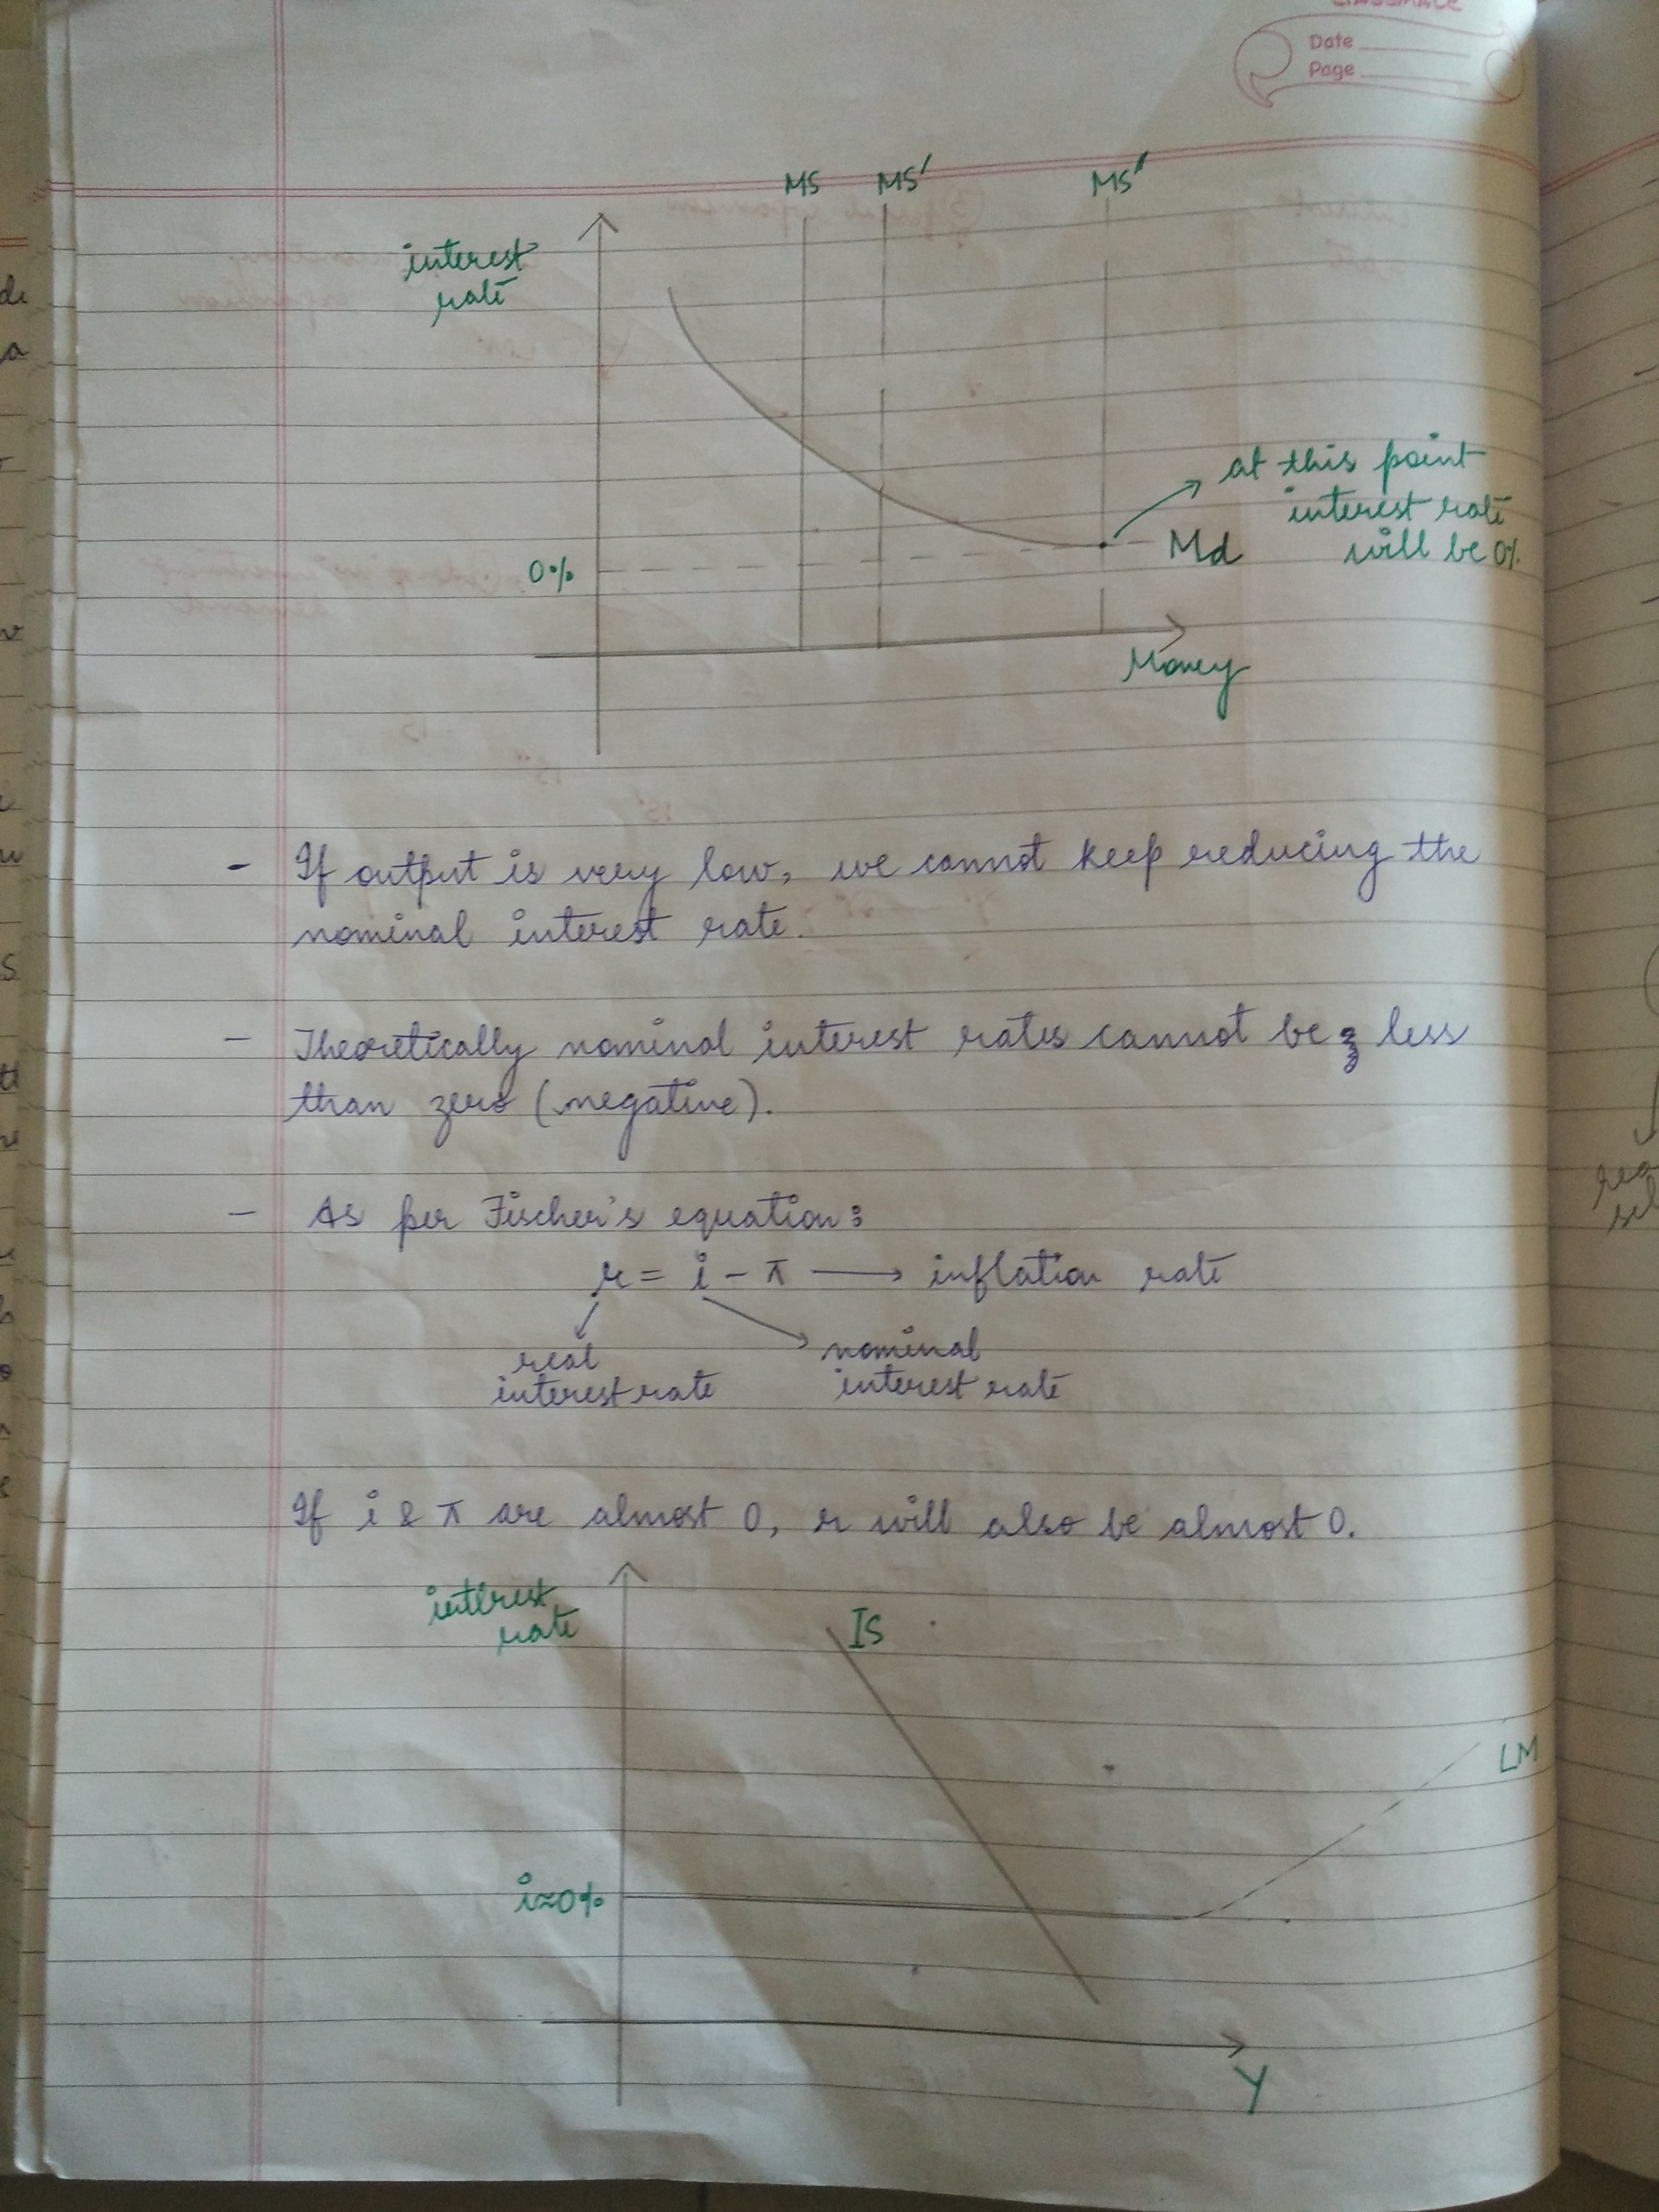 classmate
Date
Page
MS MS' MS"
interest
rate
at this point
interest rate
will be 0%
Md
0%
Money
- If output is very low, we cannot keep reducing the
nominal interest rate.
- Theoretically nominal interest rates cannot be less
than zero (negative).
- As per Fischer's equation:
r = i - π → inflation rate
real
interest rate
nominal
interest rate
If i & π are almost 0, r will also be almost 0.
interest
rate
IS
LM
i≈0%
Y